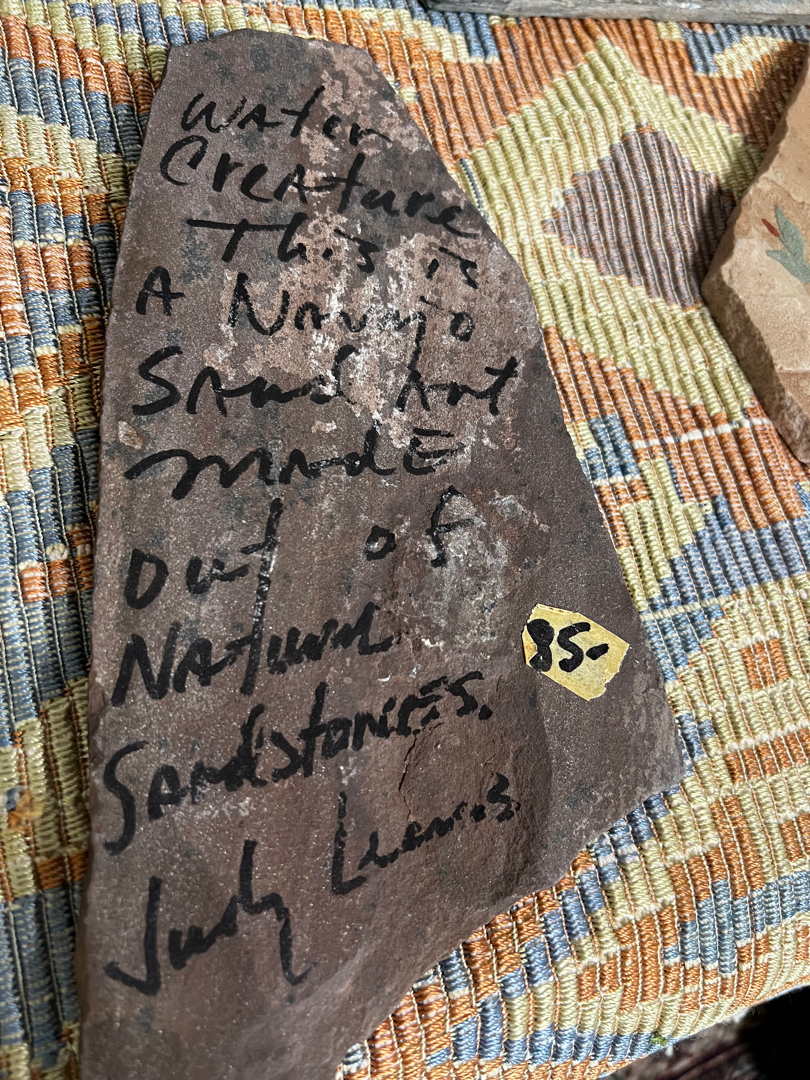 Water
Creature
This is
A Navajo
Sand Art
Made
out of
Natural
Sandstones.
85-
Judy